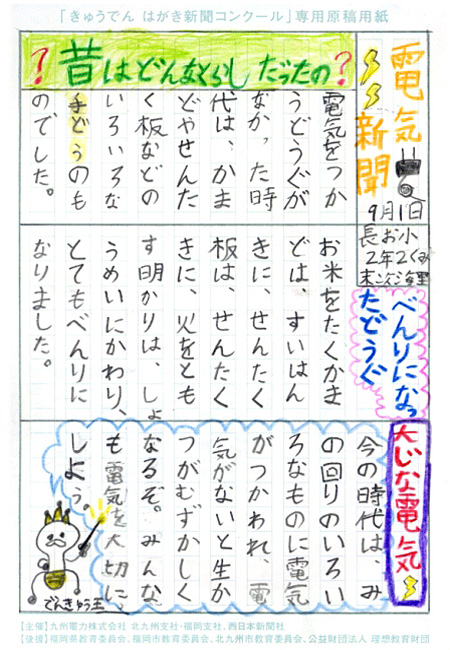 「きゅうでん はがき新聞コンクール」専用原稿用紙
電気新聞
9月1日
長お小
2年2くみ
？昔はどんなくらしだったの？
電気をつか
うどうぐが
なかった時
代は、かま
どやせんた
く板などの
いろいろな
手どうのも
のでした。
べんりになっ
たどうぐ
お米をたくかま
どは、すいはん
きに、せんたく
板は、せんたく
きに、火をとも
す明かりは、しょ
うめいにかわり、
とてもべんりに
なりました。
大じな電気
今の時代は、み
の回りのいろい
ろなものに電気
がつかわれ、電
気がないと生か
つがむずかしく
なるぞ。みんな
も電気を大切に
しよう。
でんきゅう王
【主催】九州電力株式会社 北九州支社・福岡支社、西日本新聞社
【後援】福岡県教育委員会、福岡市教育委員会、北九州市教育委員会、公益財団法人 理想教育財団